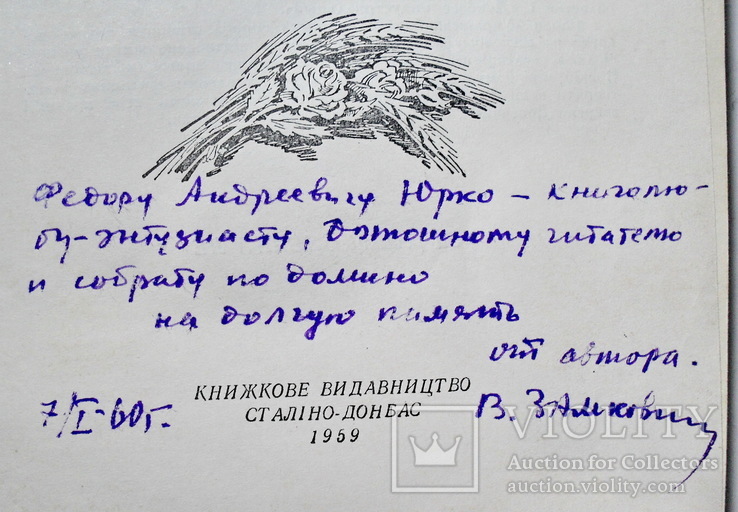 Федору Андреевичу Юрко – книголю-
бу-энтузиасту, дотошному читателю
и собрату по домино
на долгую память
от автора.
7/I-60г.
В. Замкови
КНИЖКОВЕ ВИДАВНИЦТВО
СТАЛІНО-ДОНБАС
1959
VIOLITY
Auction for Collectors
auction.violity.com